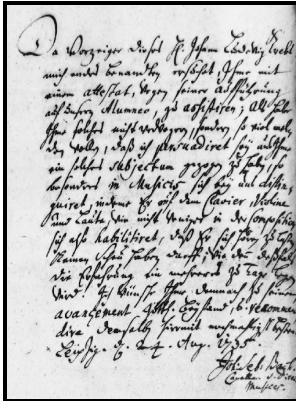 Da Vorzeiger dieses H. Johann Ludwig Krebs
mich endes benandten ersuchet, Ihme mit
einem attestat, wegen seiner Aufführung
auf unserm Alumneo, zu assistiren; Alß habe
Ihme solches nicht verwegern, sondern so viel mel-
den wollen, daß ich persuadiret sey aus Ihme
ein solches subjectum gezogen zu haben, so
besonders in Musicis sich bey uns distin-
guiret, indeme Er auf dem Clavier, Violine
und Laute, wie nicht weniger in der Composition
sich also habilitiret, daß Er sich hören zu laßen
keinen Scheu haben darff; wie denn deßfalls
die Erfahrung ein mehreres zu Tage legen
wird. Ich wünsche Ihme demnach zu seinem
avancement göttl. Beystand, u. recommen-
dire denselben hiermit nochmahligst bestens.
Leipzig. d. 24. Aug. 1735.
Joh. Seb. Bach.
Musices.